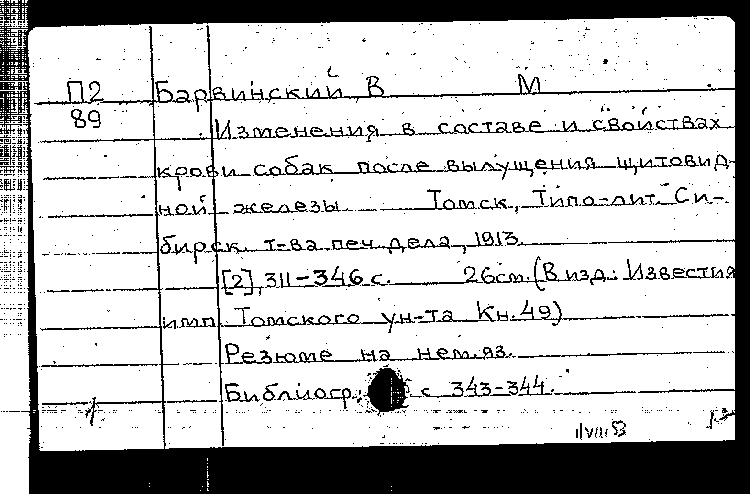 П2 Барвинский, В М
89 Изменения в составе и свойствах
крови собак после вылущения щитовид-
ной железы Томск, Типо-лит. Си-
бирск. т-ва печ. дела, 1913.
[2], 311-346 с. 26 см. (В изд.: Известия
имп. Томского ун-та Кн. 49)
Резюме на нем. яз.
Библиогр.: с 343-344.